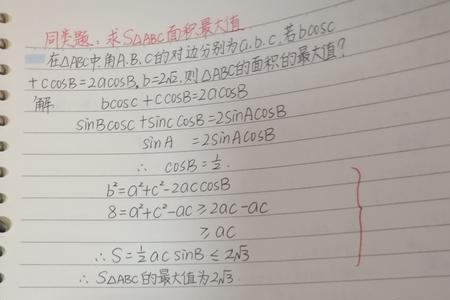 同类题：求S△ABC面积最大值
在△ABC中角A.B.C的对边分别为a.b.c.若bcosc
+ccosB=2acosB,b=2√2,则△ABC的面积的最大值?
解: bcosc+ccosB=2acosB
sinBcosc+sinccosB=2sinAcosB
sinA =2sinAcosB
∴ cosB=1/2.
b²=a²+c²-2accosB
8=a²+c²-ac≥2ac-ac
≥ac
∴S=1/2acsinB≤2√3
∴S△ABC的最大值为2√3.